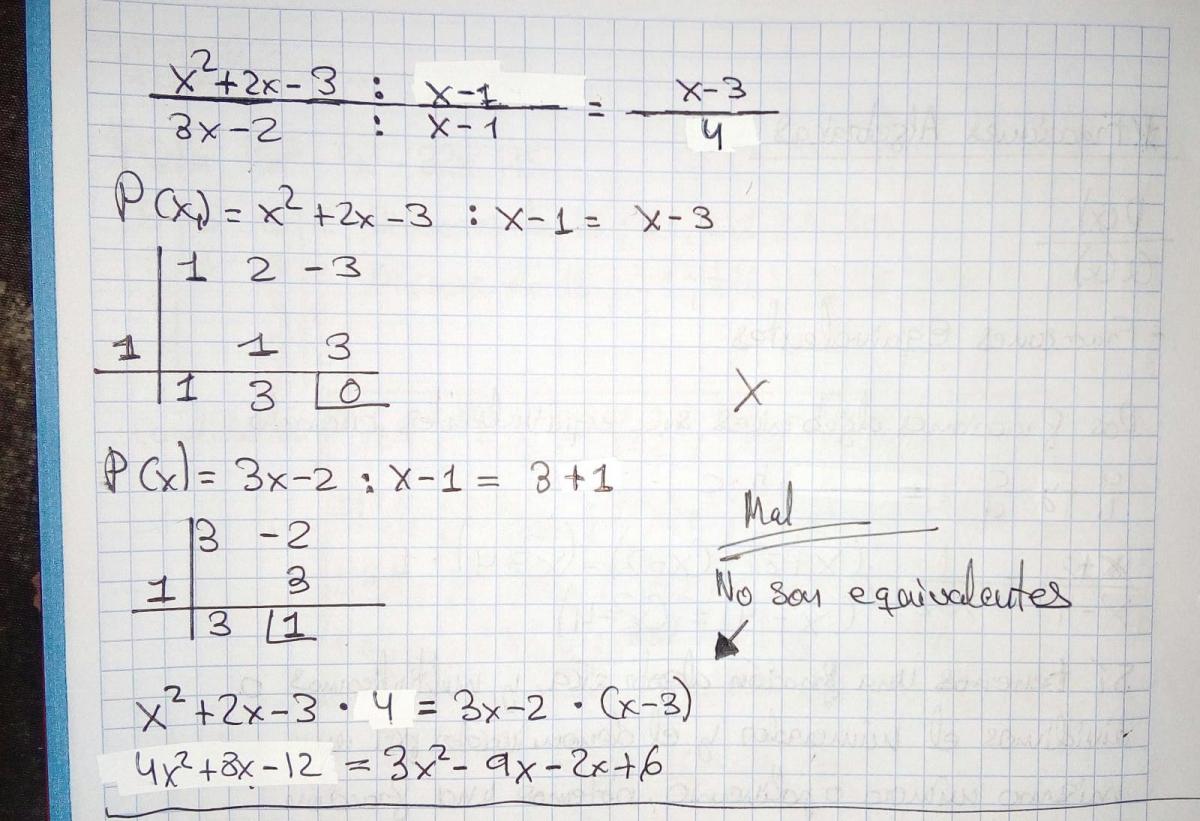 x²+2x-3 : x-1 = x-3
3x-2 : x-1 4
P(x) = x²+2x-3 : x-1 = x-3
1 2 -3
1 1 3
1 3 0
X
P(x) = 3x-2 : x-1 = 3+1
3 -2
1 3
3 1
Mal
No son equivalentes
x²+2x-3 · 4 = 3x-2 · (x-3)
4x²+8x-12 = 3x²-9x-2x+6